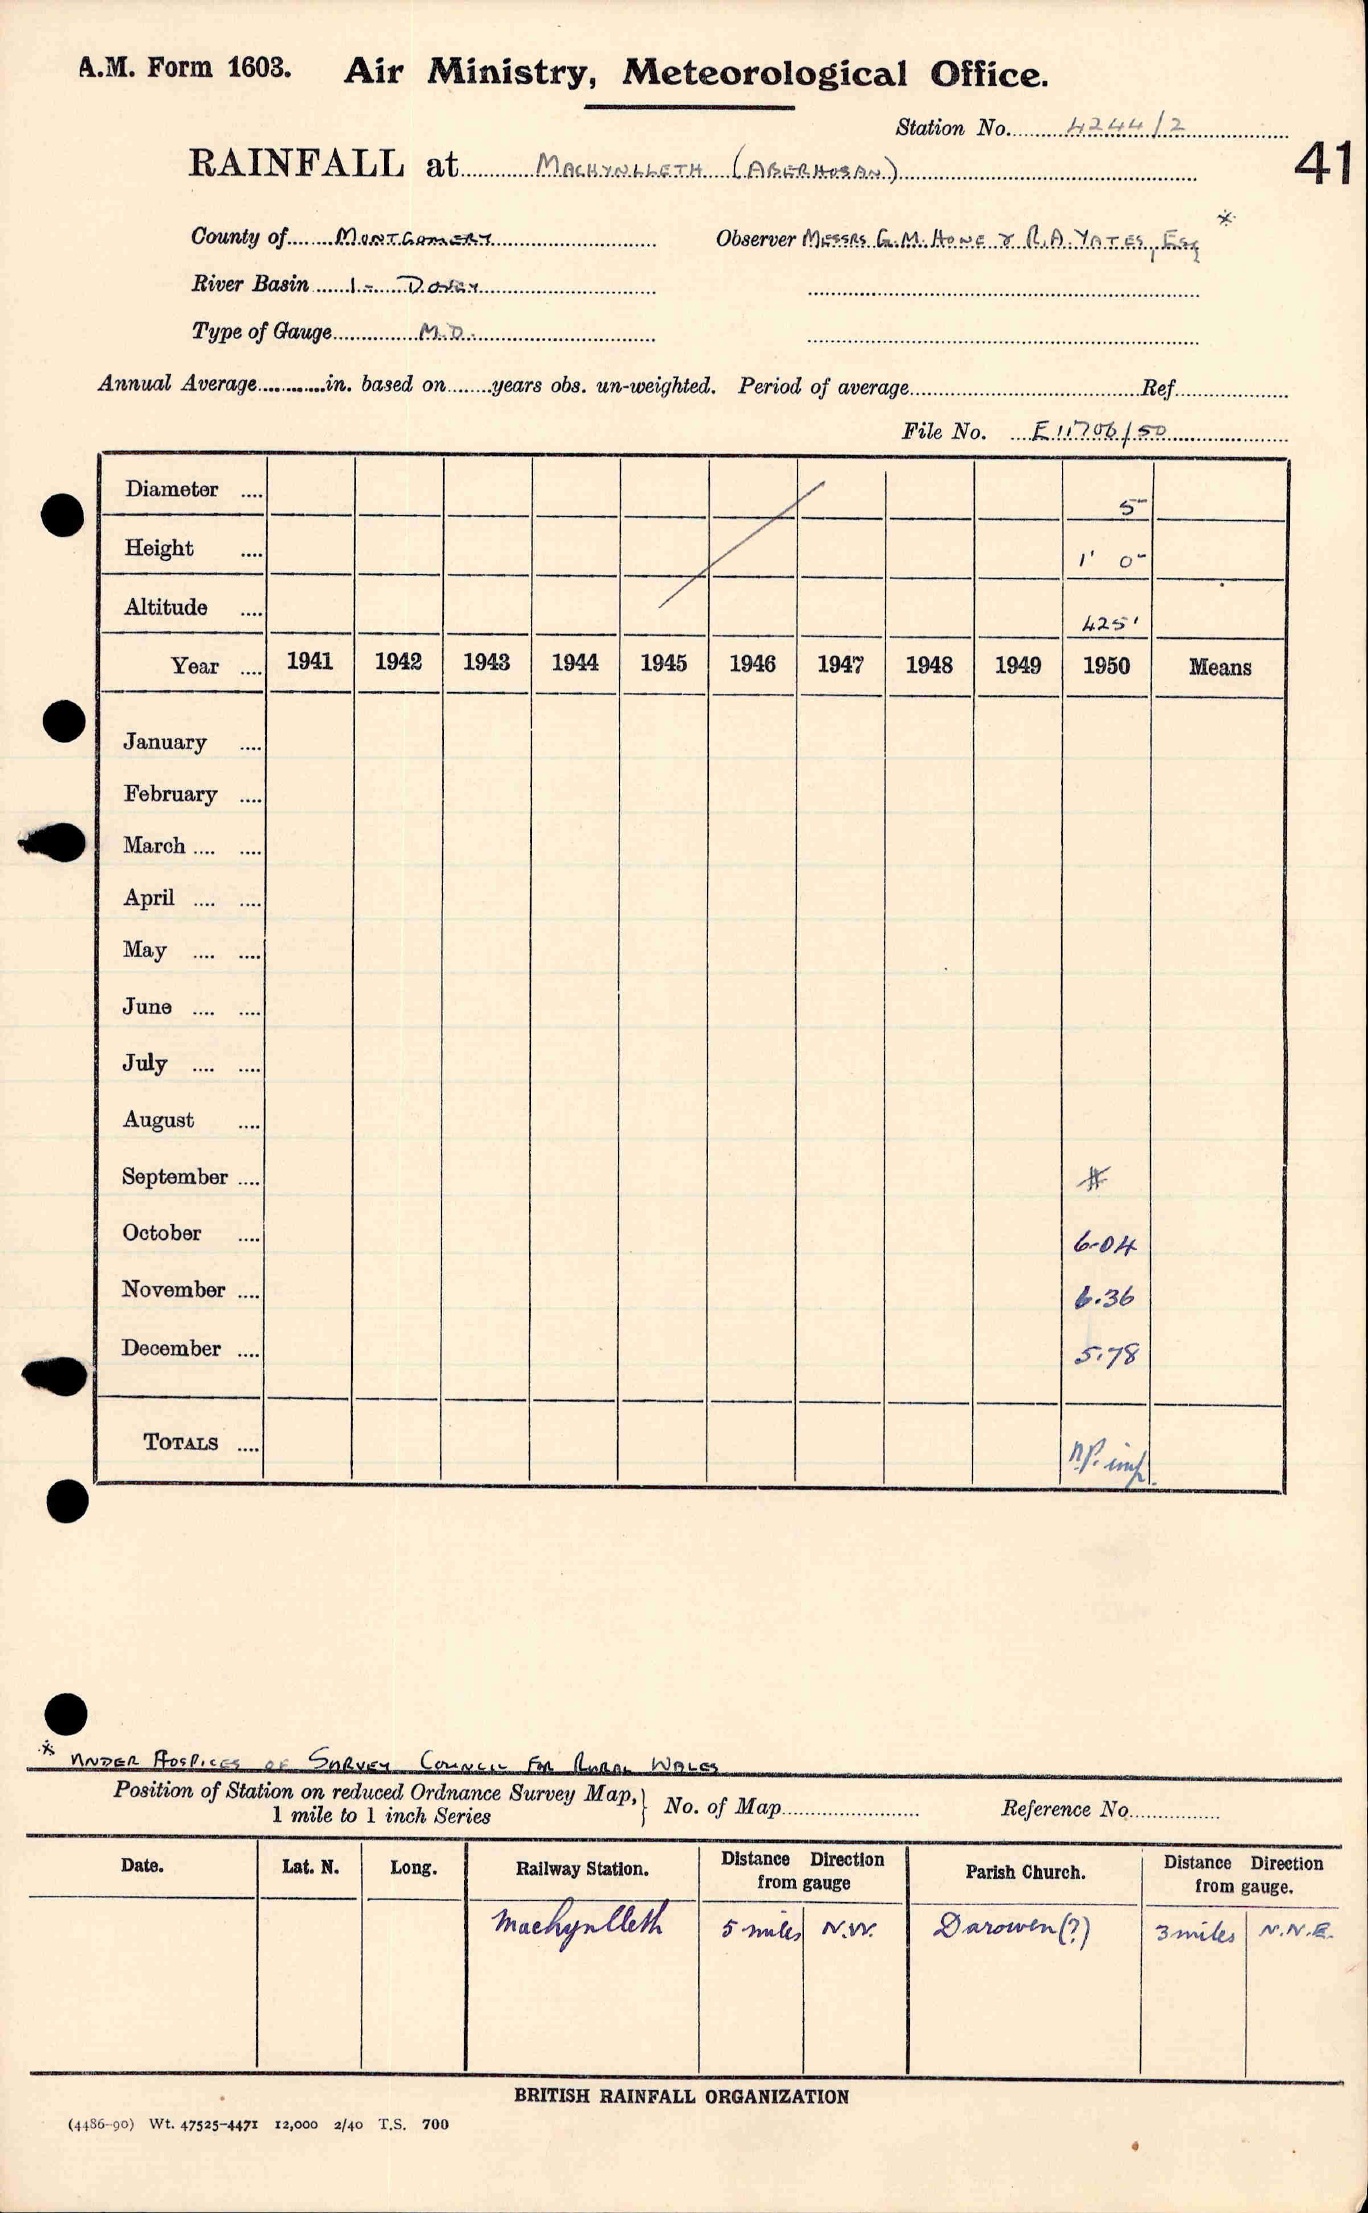 A.M. Form 1603. Air Ministry, Meteorological Office.
Station No. 4244/2
41
RAINFALL at MACHYNLLETH (ABERHOSAN)
County of MONTGOMERY Observer MESSRS G.M. HOWE & R.A. YATES, ESQ *
River Basin 1 - DOVEY
Type of Gauge M.O.
Annual Average in. based on years obs. un-weighted. Period of average Ref
File No. E11706/50
Diameter .... 5"
Height .... 1' 0"
Altitude .... 425'
Year .... 1941 1942 1943 1944 1945 1946 1947 1948 1949 1950 Means
January ....
February ....
March .... ....
April .... ....
May .... ....
June .... ....
July .... ....
August ....
September .... #
October .... 6.04
November .... 6.36
December .... 5.78
TOTALS .... n.P. imp.
* UNDER HOSPICES OF SURVEY COUNCIL FOR RURAL WALES
Position of Station on reduced Ordnance Survey Map, } No. of Map Reference No.
1 mile to 1 inch Series
Date. Lat. N. Long. Railway Station. Distance Direction from gauge Parish Church. Distance Direction from gauge.
Machynlleth 5 miles N.W. Darowen (?) 3 miles N.N.E.
BRITISH RAINFALL ORGANIZATION
(4486-90) Wt. 47525-4471 12,000 2/40 T.S. 700